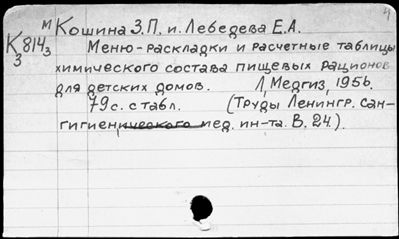 М Кошина З.П. и Лебедева Е.А.
К 814з Меню-раскладки и расчетные таблицы
3 химического состава пищевых рационов
для детских домов. Л, Медгиз, 1956.
79 с. с табл. (Труды Ленингр. сан-
гигиенического мед. ин-та. В. 24.).